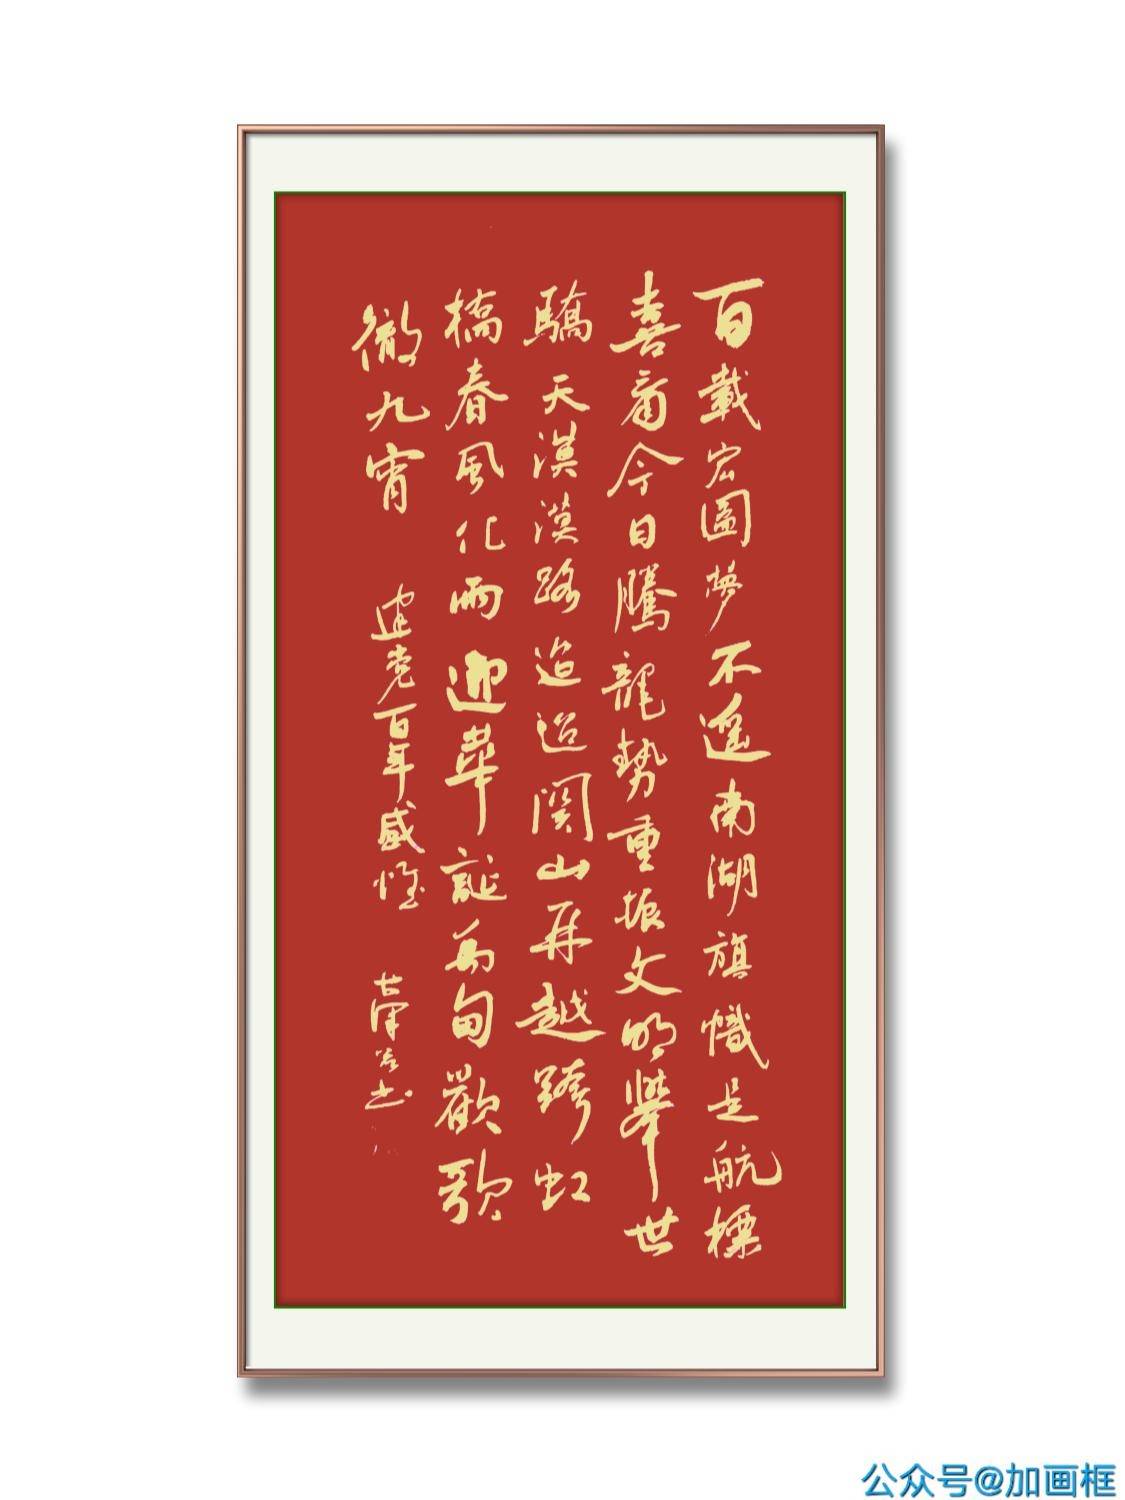 百載宏圖夢不遥南湖旗幟是航標
喜看今日騰龍勢重振文明舉世
驕天漠漠路迢迢関山再越跨虹
橋春風化雨迎華誕萬甸歡歌
徹九霄
建党百年感怀
书
公众号@加画框